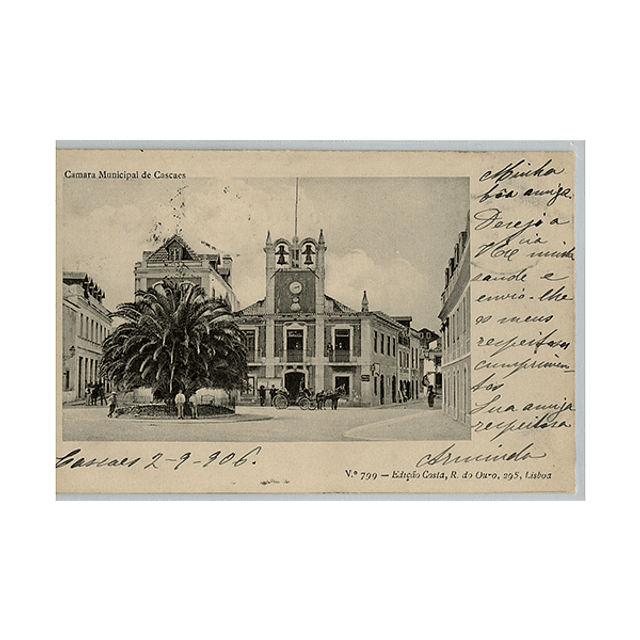 Camara Municipal de Cascaes
Minha
boa amiga.
Desejo a
minha
saude e
envio-lhe
os meus
respeitosos
cumprimen-
tos
Sua amiga
respeitosa
Arminda
Cascaes 2-9-906.
V.ª 799 — Edição Costa, R. do Ouro, 295, Lisboa